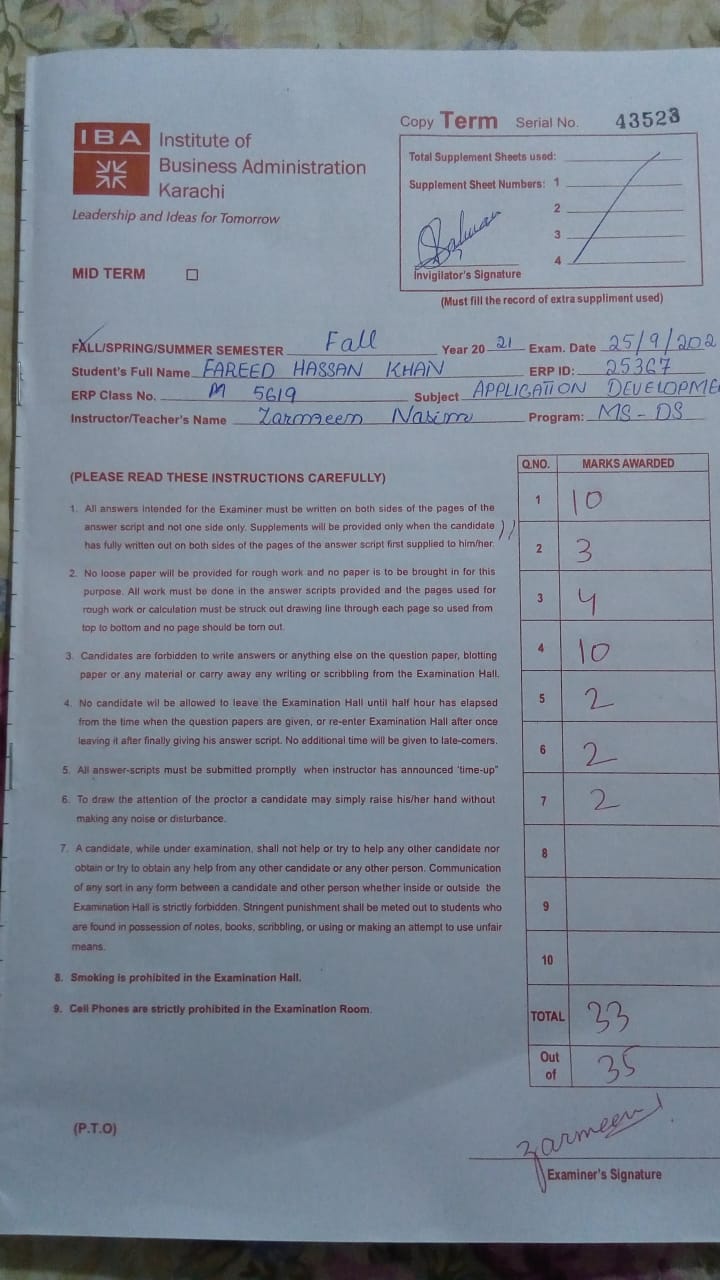 IBA Institute of
Business Administration
Karachi
Leadership and Ideas for Tomorrow
MID TERM
Copy Term Serial No. 43523
Total Supplement Sheets used:
Supplement Sheet Numbers: 1
2
3
4
Invigilator's Signature
(Must fill the record of extra suppliment used)
FALL/SPRING/SUMMER SEMESTER Fall Year 20 21 Exam. Date 25/9/202
Student's Full Name FAREED HASSAN KHAN ERP ID: 25367
ERP Class No. M 5619 Subject APPLICATION DEVELOPME
Instructor/Teacher's Name Zarmeem Nasim Program: MS-DS
(PLEASE READ THESE INSTRUCTIONS CAREFULLY)
1. All answers intended for the Examiner must be written on both sides of the pages of the
answer script and not one side only. Supplements will be provided only when the candidate
has fully written out on both sides of the pages of the answer script first supplied to him/her.
2. No loose paper will be provided for rough work and no paper is to be brought in for this
purpose. All work must be done in the answer scripts provided and the pages used for
rough work or calculation must be struck out drawing line through each page so used from
top to bottom and no page should be torn out.
3. Candidates are forbidden to write answers or anything else on the question paper, blotting
paper or any material or carry away any writing or scribbling from the Examination Hall.
4. No candidate wil be allowed to leave the Examination Hall until half hour has elapsed
from the time when the question papers are given, or re-enter Examination Hall after once
leaving it after finally giving his answer script. No additional time will be given to late-comers.
5. All answer-scripts must be submitted promptly when instructor has announced 'time-up"
6. To draw the attention of the proctor a candidate may simply raise his/her hand without
making any noise or disturbance.
7. A candidate, while under examination, shall not help or try to help any other candidate nor
obtain or try to obtain any help from any other candidate or any other person. Communication
of any sort in any form between a candidate and other person whether inside or outside the
Examination Hall is strictly forbidden. Stringent punishment shall be meted out to students who
are found in possession of notes, books, scribbling, or using or making an attempt to use unfair
means.
8. Smoking is prohibited in the Examination Hall.
9. Cell Phones are strictly prohibited in the Examination Room.
(P.T.O)
Q.NO. MARKS AWARDED
1 10
2 3
3 4
4 10
5 2
6 2
7 2
8
9
10
TOTAL 33
Out of 35
Zarmeen
Examiner's Signature